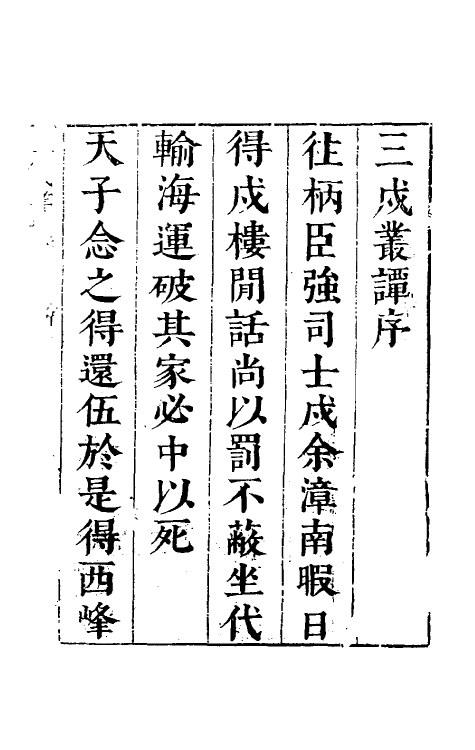 三戍叢譚序
徃柄臣強司士戍余漳南暇日
得戍樓閒話尚以罰不蔽坐代
輸海運破其家必中以死
天子念之得還伍於是得西峰